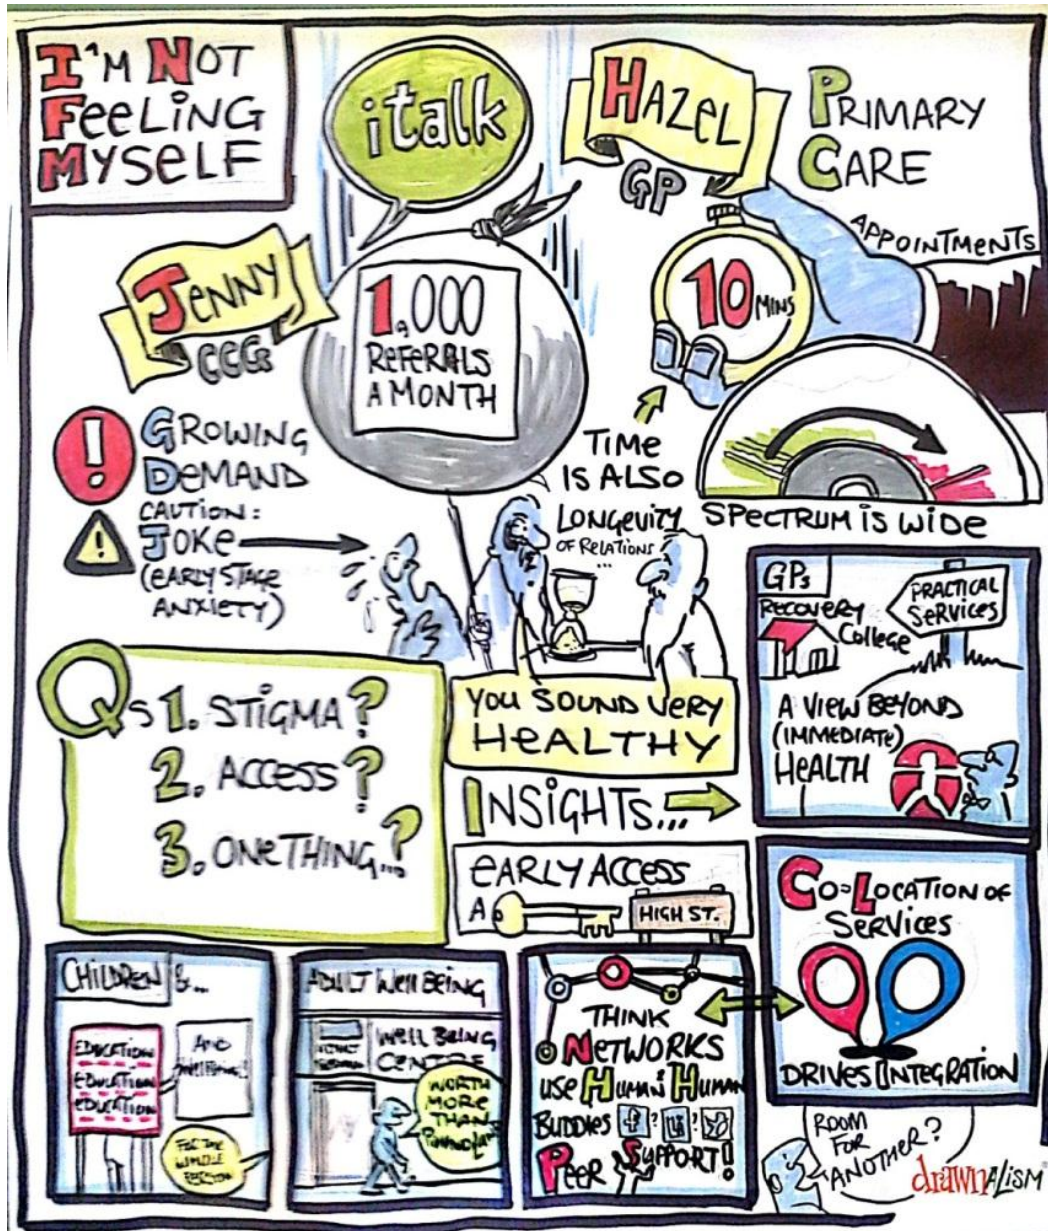 I'M NOT
FEELING
MYSELF
italk
HAZEL
GP
PRIMARY
CARE
APPOINTMENTS
10 MINS
JENNY
CCGs
1,000
REFERRALS
A MONTH
GROWING
DEMAND
CAUTION:
JOKE
(EARLY STAGE
ANXIETY)
TIME
IS ALSO
LONGEVITY
OF RELATIONS
...
SPECTRUM IS WIDE
YOU SOUND VERY
HEALTHY
Qs 1. STIGMA?
2. ACCESS?
3. ONE THING..?
INSIGHTS...
GPs
RECOVERY
College
PRACTICAL
SERVICES
A VIEW BEYOND
(IMMEDIATE)
HEALTH
EARLY ACCESS
A
HIGH ST.
CO-LOCATION OF
SERVICES
DRIVES INTEGRATION
CHILDREN &...
EDUCATION
EDUCATION
EDUCATION
AND
FOR THE
WHOLE
ADULT WELL BEING
WELL BEING
CENTRE
WORTH
MORE
THAN
THINK
NETWORKS
USE HUMAN & HUMAN
BUDDIES f ? ?
PEER SUPPORT!
ROOM
FOR
ANOTHER?
drawnalism